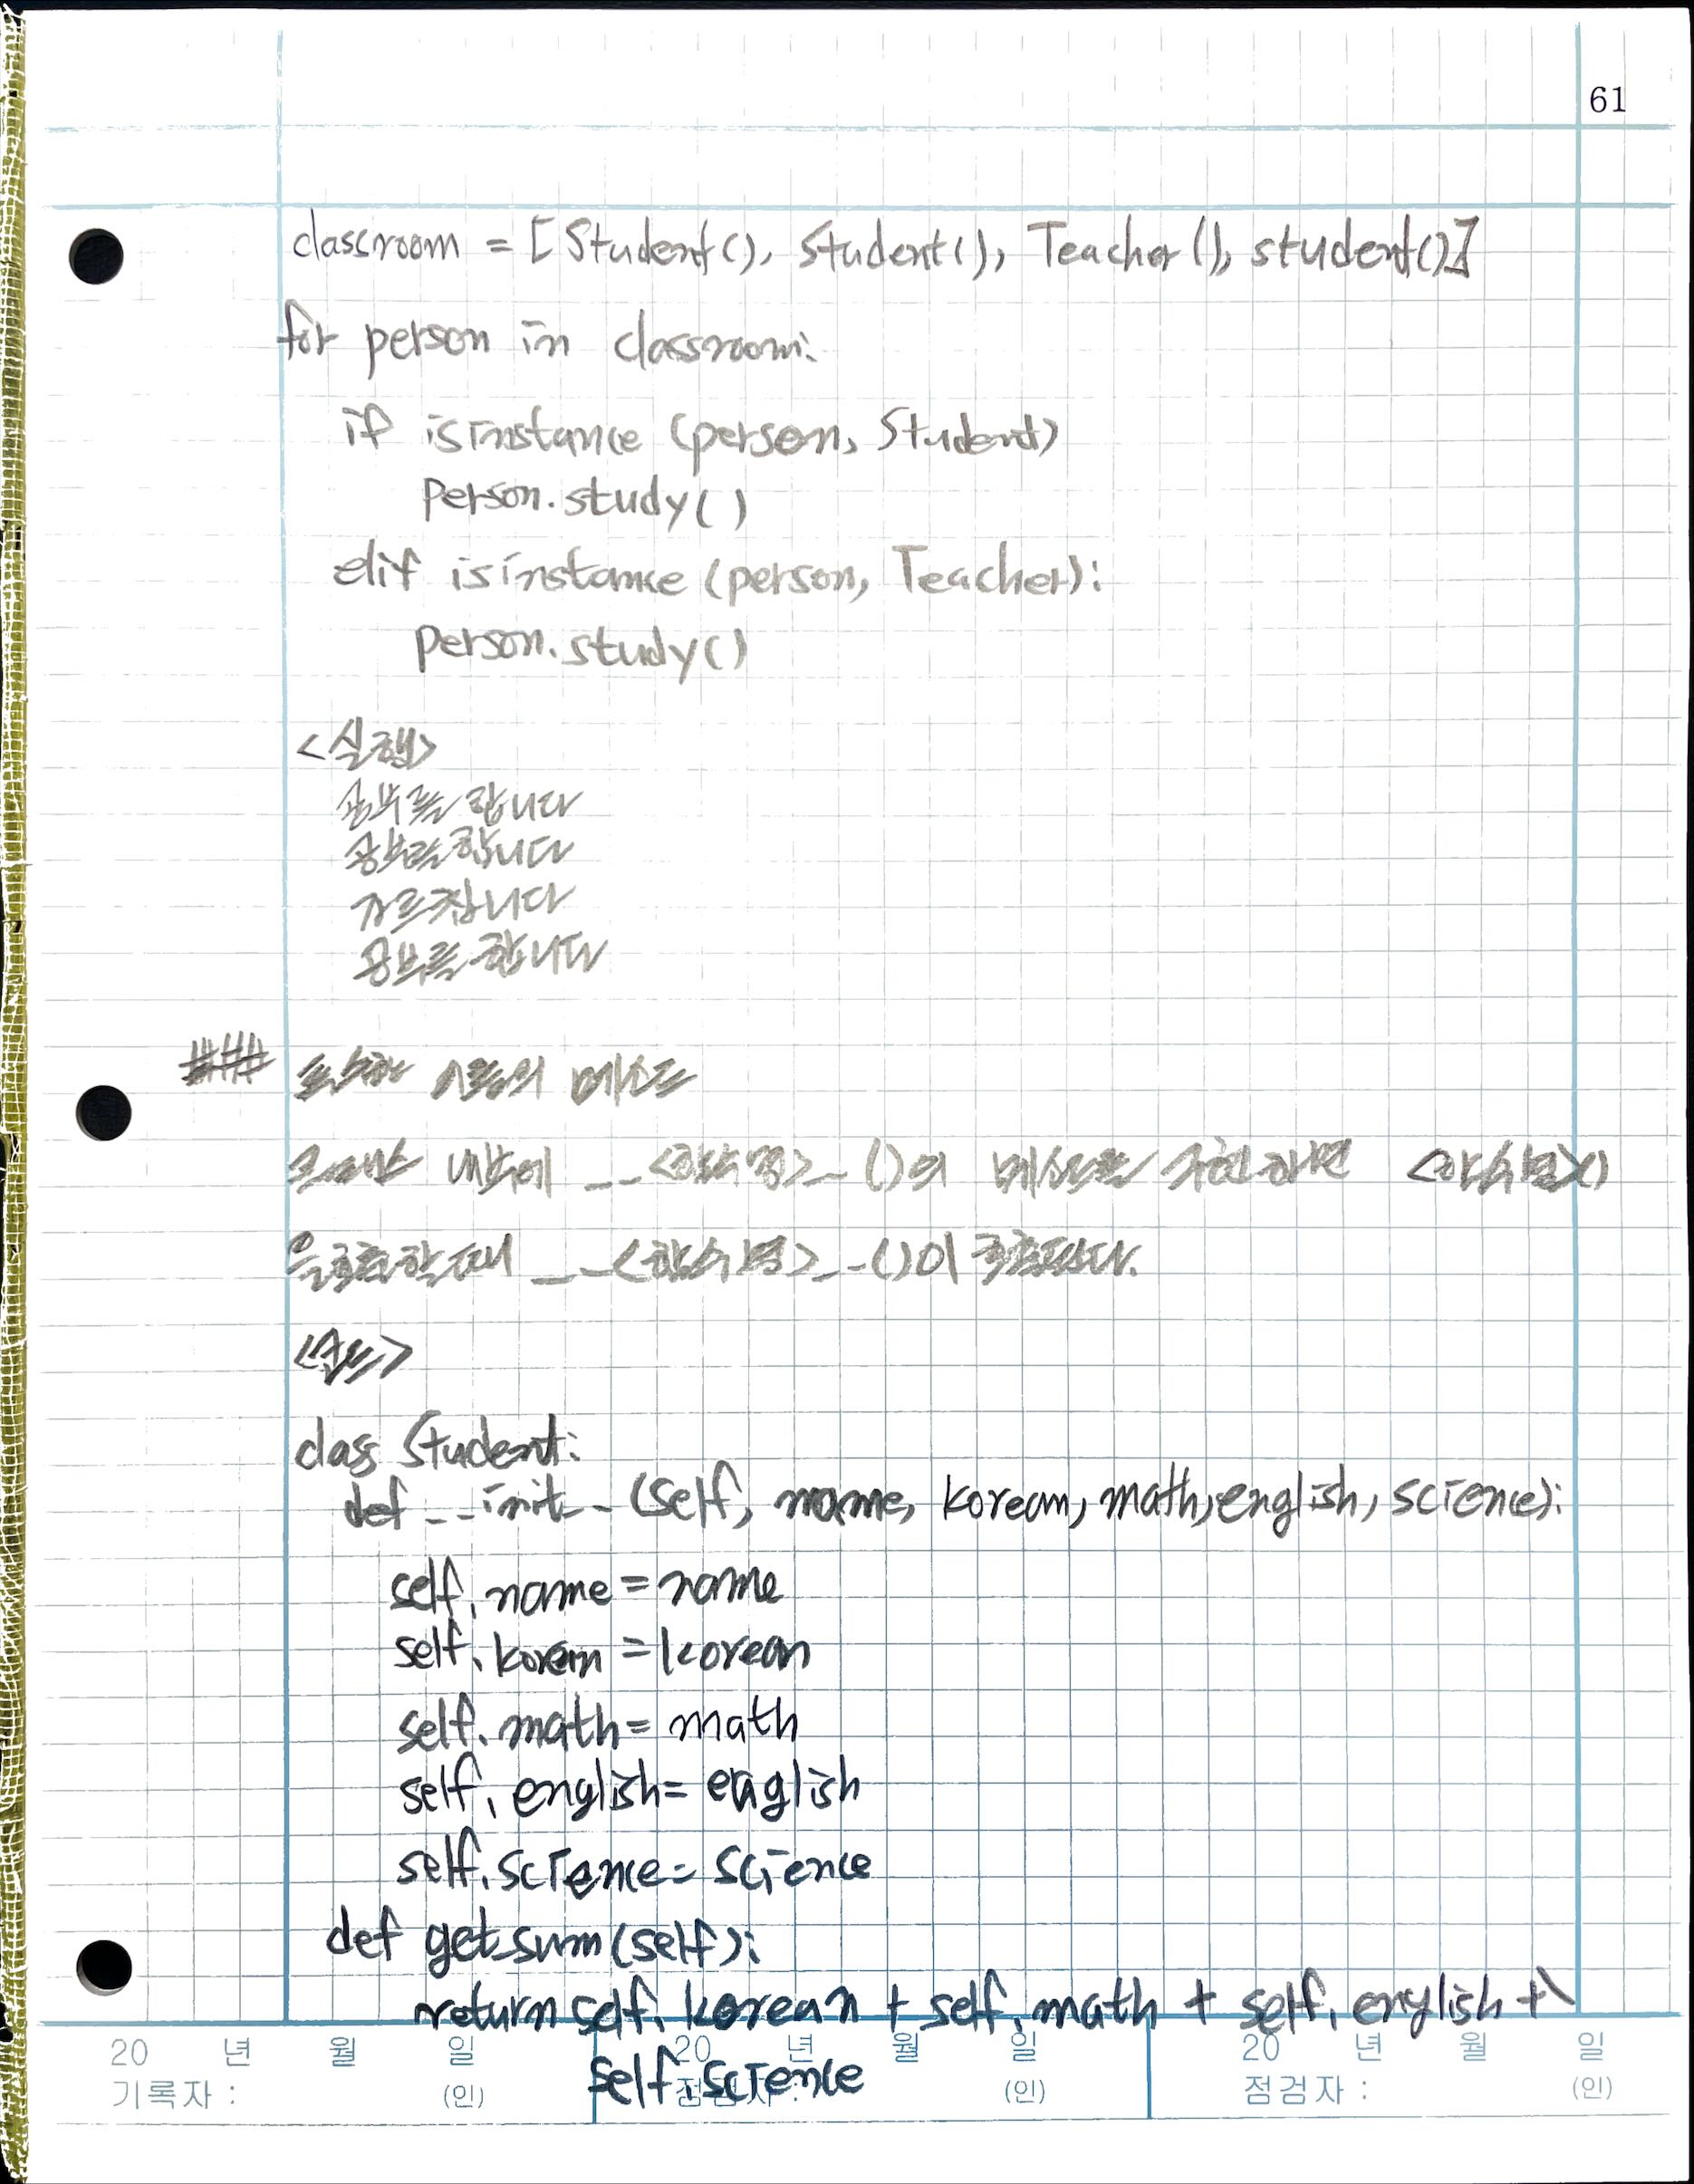 61
classroom = [Student(), Student(), Teacher(), student()]
for person in classroom:
if isinstance (person, Student)
person.study()
elif isinstance (person, Teacher):
person.study()
<실행>
공부를 합니다
공부를 합니다
가르칩니다
공부를 합니다
### 특수한 이름의 메소드
클래스 내부에 __<함수명>__()의 메소드를 구현하면 <함수명>()
을 호출할 때 __<함수명>__()이 호출된다.
class Student:
def __init__(self, name, korean, math, english, science):
self.name = name
self.korean = korean
self.math = math
self.english = english
self.science = science
def get_sum(self):
return self.korean + self.math + self.english + \
self.science
20 년 월 일 20 년 월 일 20 년 월 일
기록자 : (인) 점검자 : (인) 점검자 : (인)